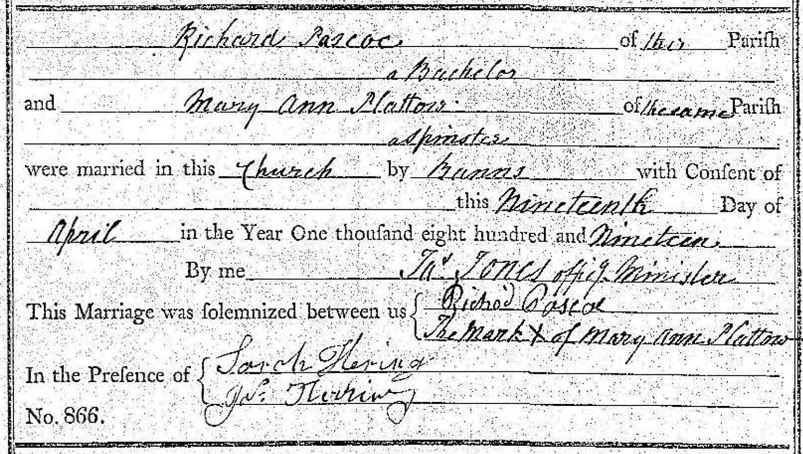 Richard Pascoe of this Pariſh
a Bachelor
and Mary Ann Plattow of the same Pariſh
a Spinster
were married in this Church by Banns with Conſent of
this Nineteenth Day of
April in the Year One thouſand eight hundred and Nineteen.
By me Jas Jones offig Minister
This Marriage was ſolemnized between us { Richd Pascoe
The Mark X of Mary Ann Plattow
In the Preſence of { Sarah Hering
No. 866.